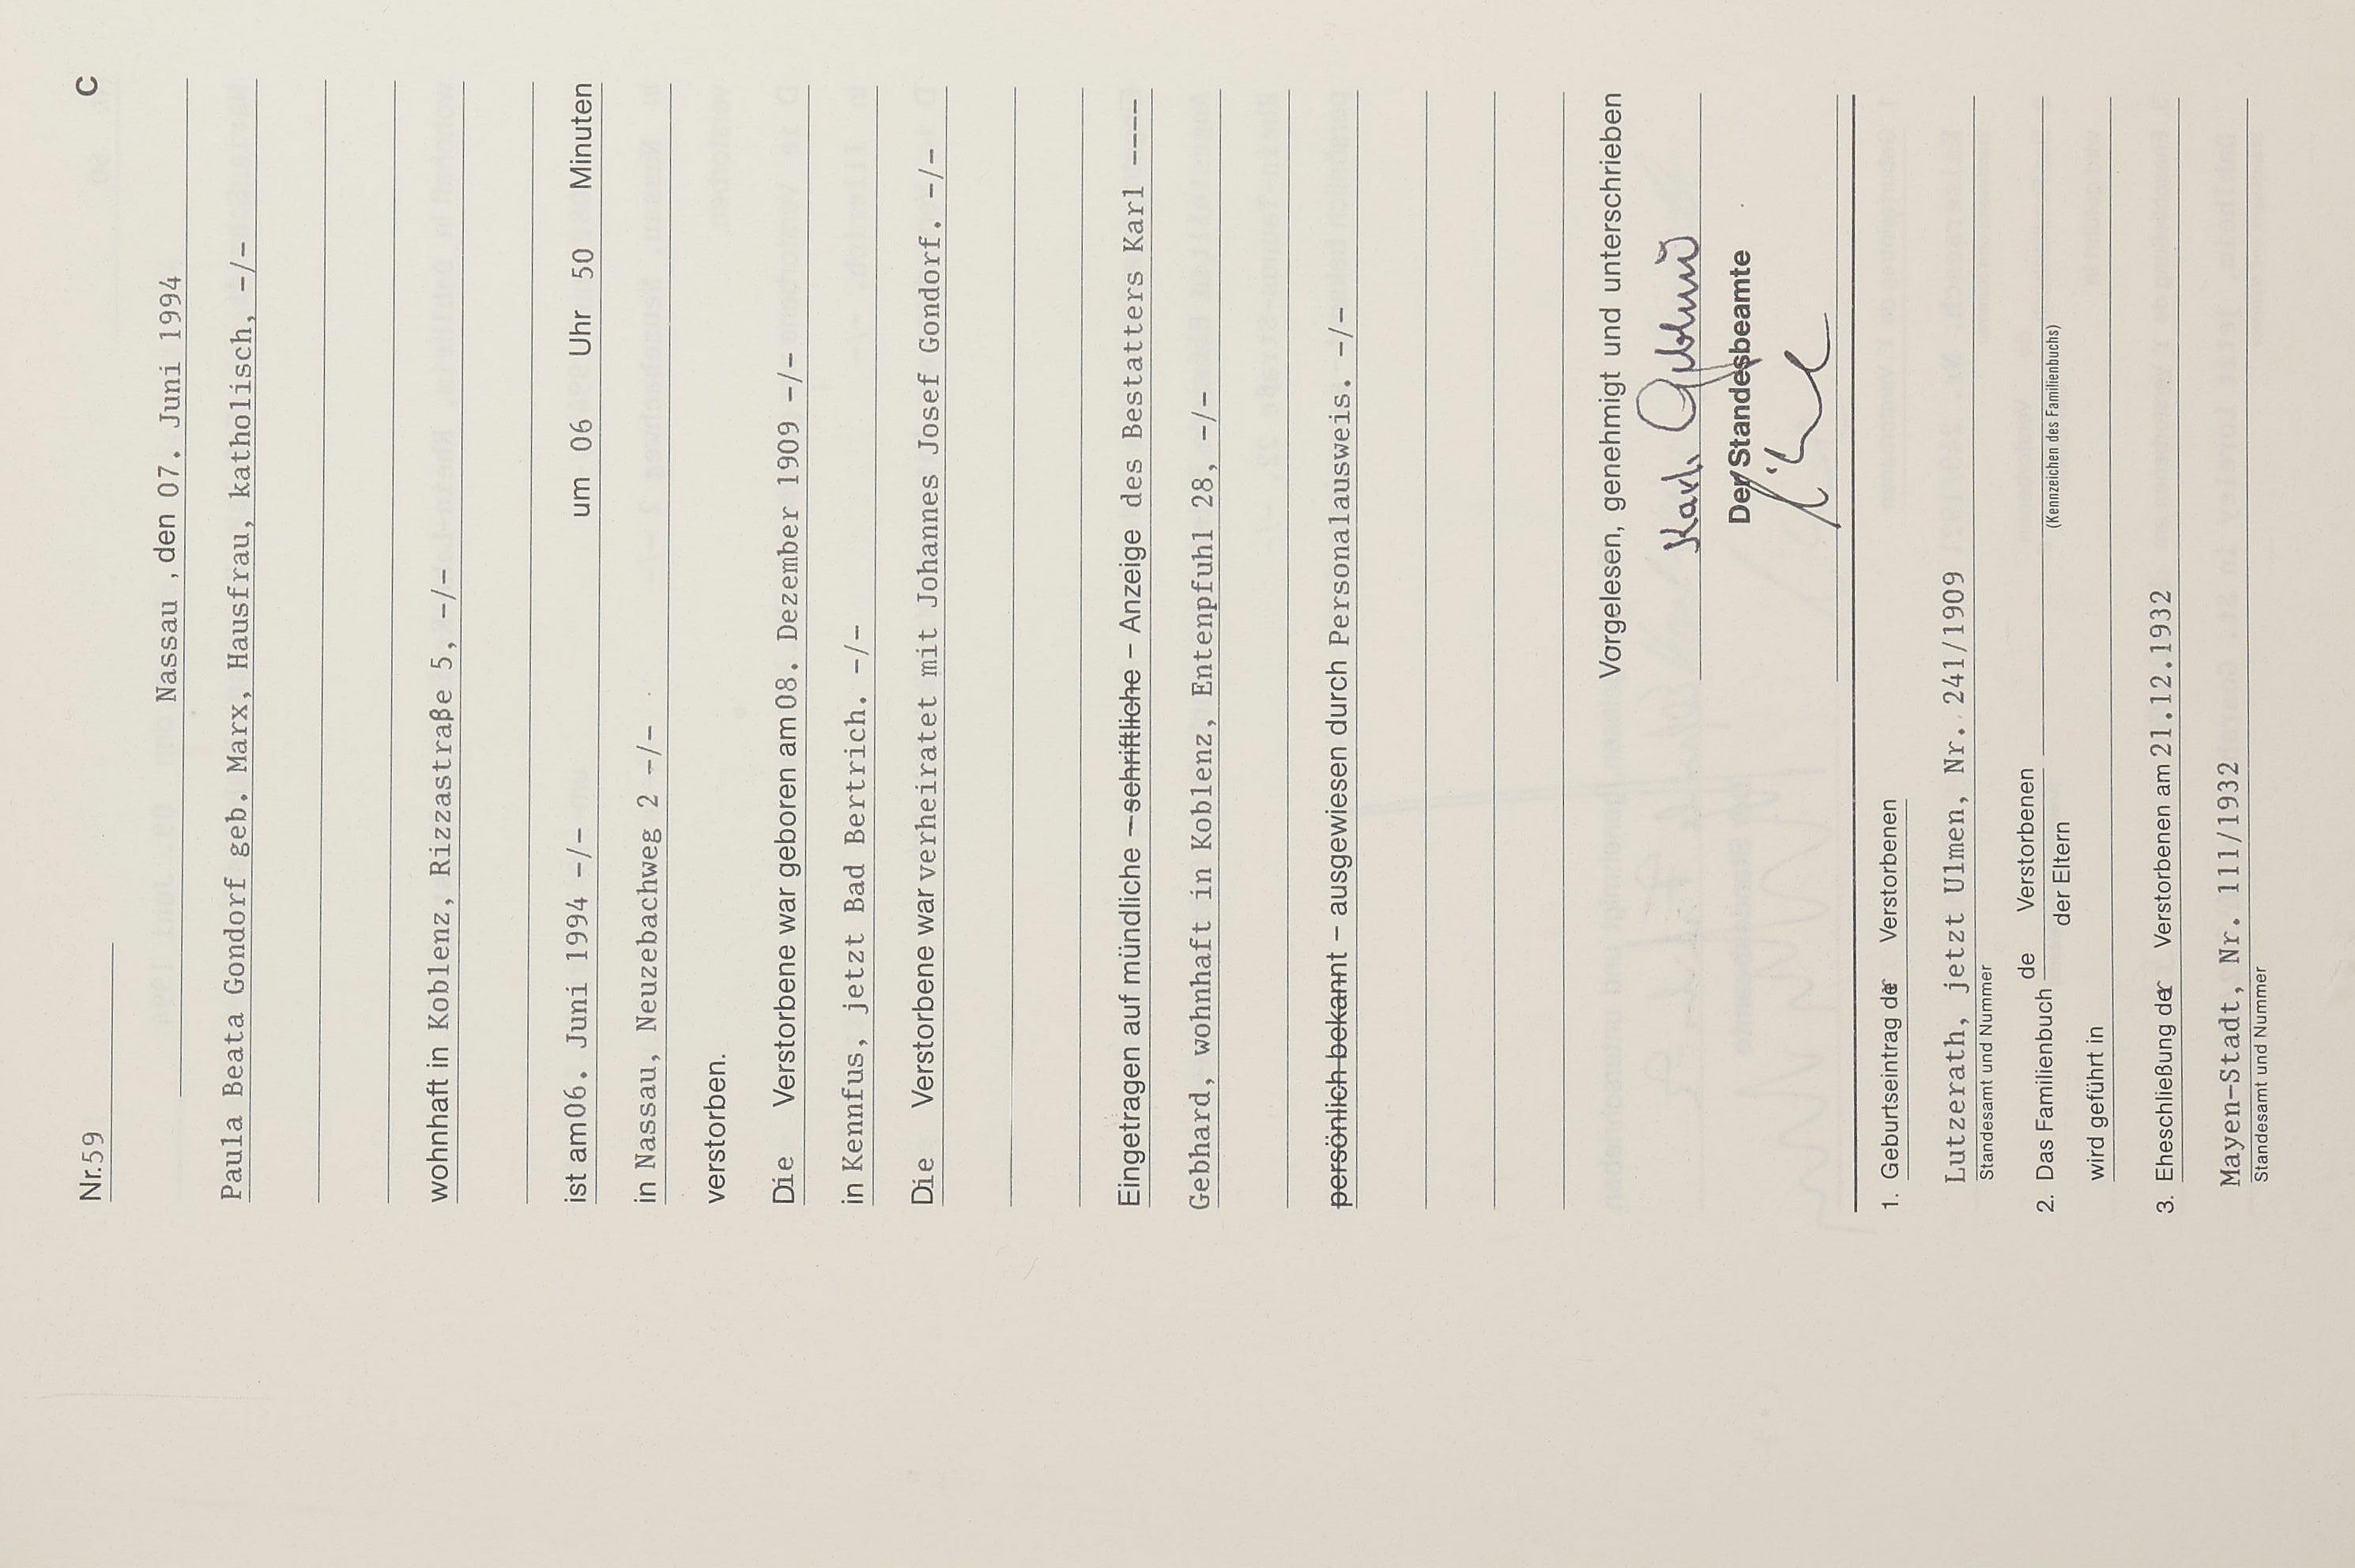 Nr. 59 C
Nassau , den 07. Juni 1994
Paula Beata Gondorf geb. Marx, Hausfrau, katholisch, -/-
wohnhaft in Koblenz, Rizzastraße 5, -/-
ist am 06. Juni 1994 -/- um 06 Uhr 50 Minuten
in Nassau, Neuzebachweg 2 -/-
verstorben.
Die Verstorbene war geboren am 08. Dezember 1909 -/-
in Kennfus, jetzt Bad Bertrich. -/-
Die Verstorbene war verheiratet mit Johannes Josef Gondorf. -/-
Eingetragen auf mündliche – schriftliche – Anzeige des Bestatters Karl ----
Gebhard, wohnhaft in Koblenz, Entenpfuhl 28, -/-
persönlich bekannt – ausgewiesen durch Personalausweis. -/-
Vorgelesen, genehmigt und unterschrieben
Karl Gebhard
Der Standesbeamte
1. Geburtseintrag der Verstorbenen
Lutzerath, jetzt Ulmen, Nr. 241/1909
Standesamt und Nummer
2. Das Familienbuch de Verstorbenen
der Eltern
(Kennzeichen des Familienbuchs)
wird geführt in
3. Eheschließung der Verstorbenen am 21.12.1932
Mayen-Stadt, Nr. 111/1932
Standesamt und Nummer